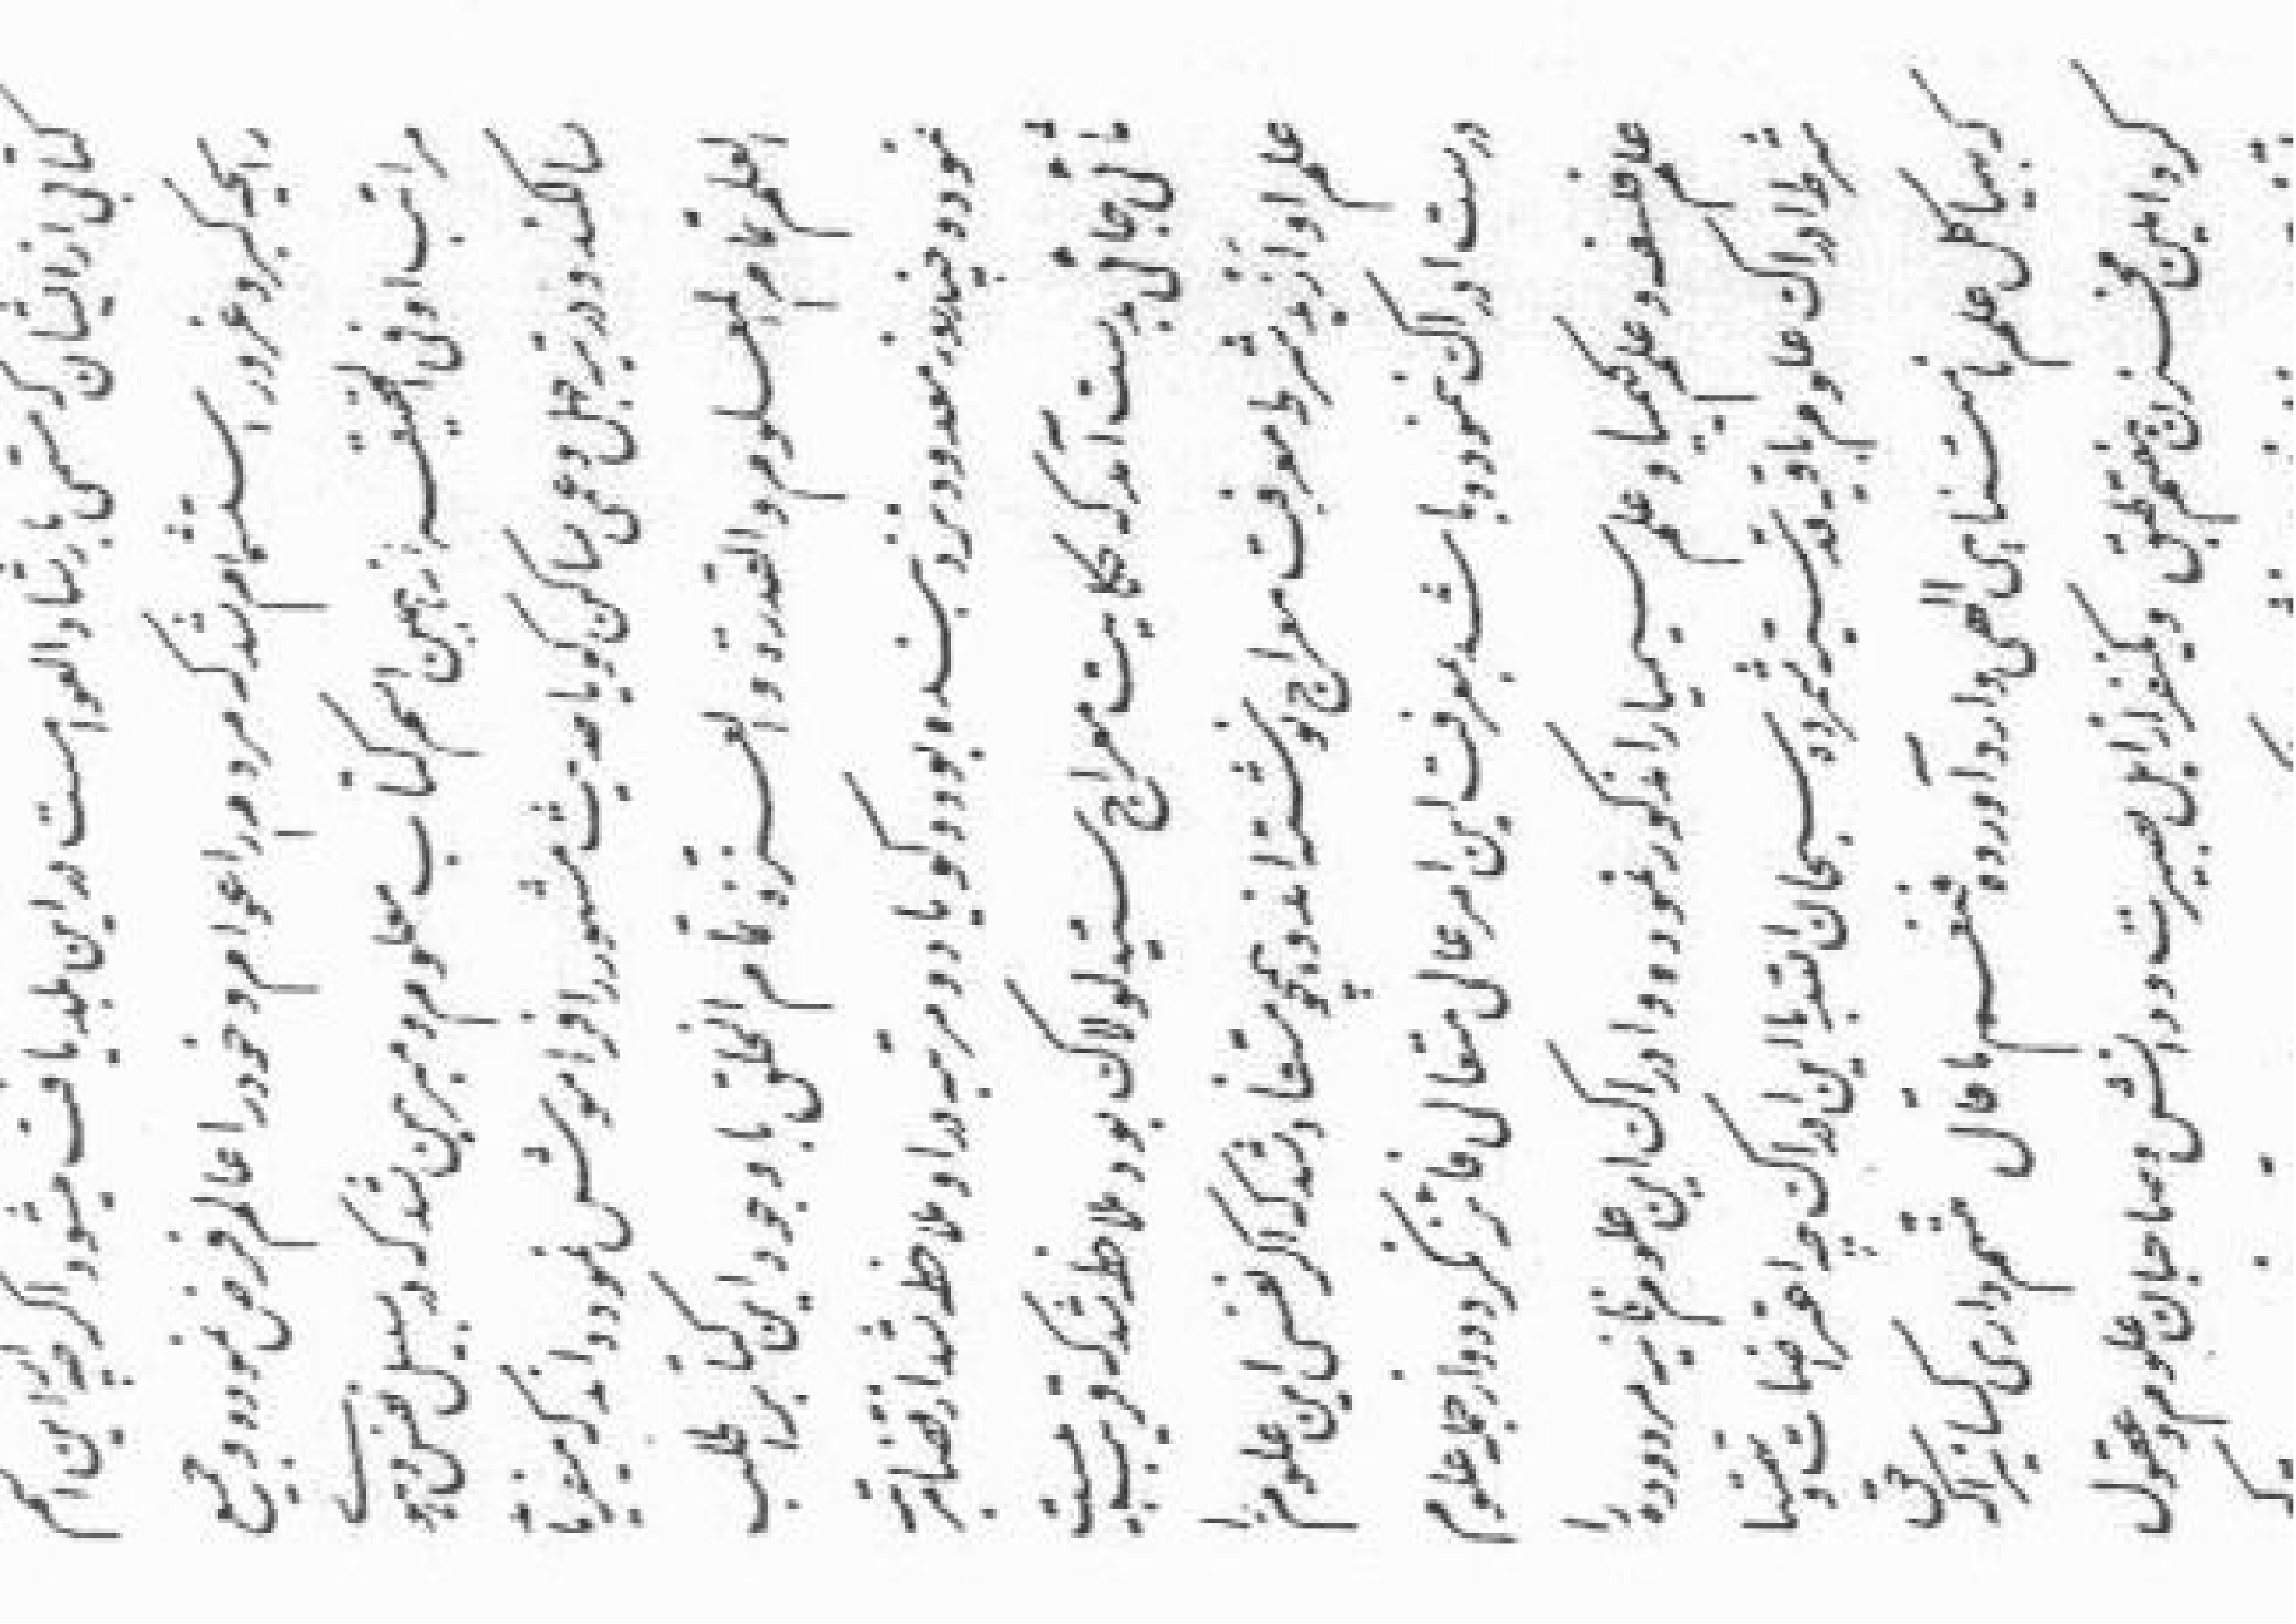 کتابی از ایشان که مسمی بارشاد العوامست در این بلد یافت میشود اگر چه از این اسم
رایحه کبر و غرور استشمام شد که مردم را عوام و خود را عالم فرض نموده و جمیع
مراتب او فی الحقیقه از همین اسم کتاب معلوم و مبرهن شد که در سبیل نفس و هوی
سالکند و در تیه جهل و عمی ساکن گویا حدیث مشهور را فراموش نموده‌اند که میفرماید
العلم تمام المعلوم و القدرة و العزة تمام الخلق با وجود این کتاب را طلب
نموده چند روز معدود نزد بنده بود و گویا دو مرتبه در او ملاحظه شد از قضا مرتبه
ثانی جائی بدست آمد که حکایت معراج سید لولاک بود ملاحظه شد که قریب بیست
علم او ازید شرط معرفت معراج نوشته‌اند و همچه مستفاد شد که اگر نفسی این علوم را
درست ادراک ننموده باشد بمعرفت این امر عالی متعالی فائز نگردد و از جمله علوم
علم فلسفه و علم کیمیا و علم سیمیا را مذکور نموده و ادراک این علوم فانیه مردوده را
شرط ادراک علوم باقیه قدسیه شمرده سبحان الله با این ادراک چه اعتراضات و تهمتها
که بهیاکل علم نامتناهی الهی وارد آورده فنعم ما قال متهم داری کسانی را که حق
کرد امین مخزن هفتم طبق و یکنفر از اهل بصیرت و دانش و صاحبان علوم و عقول